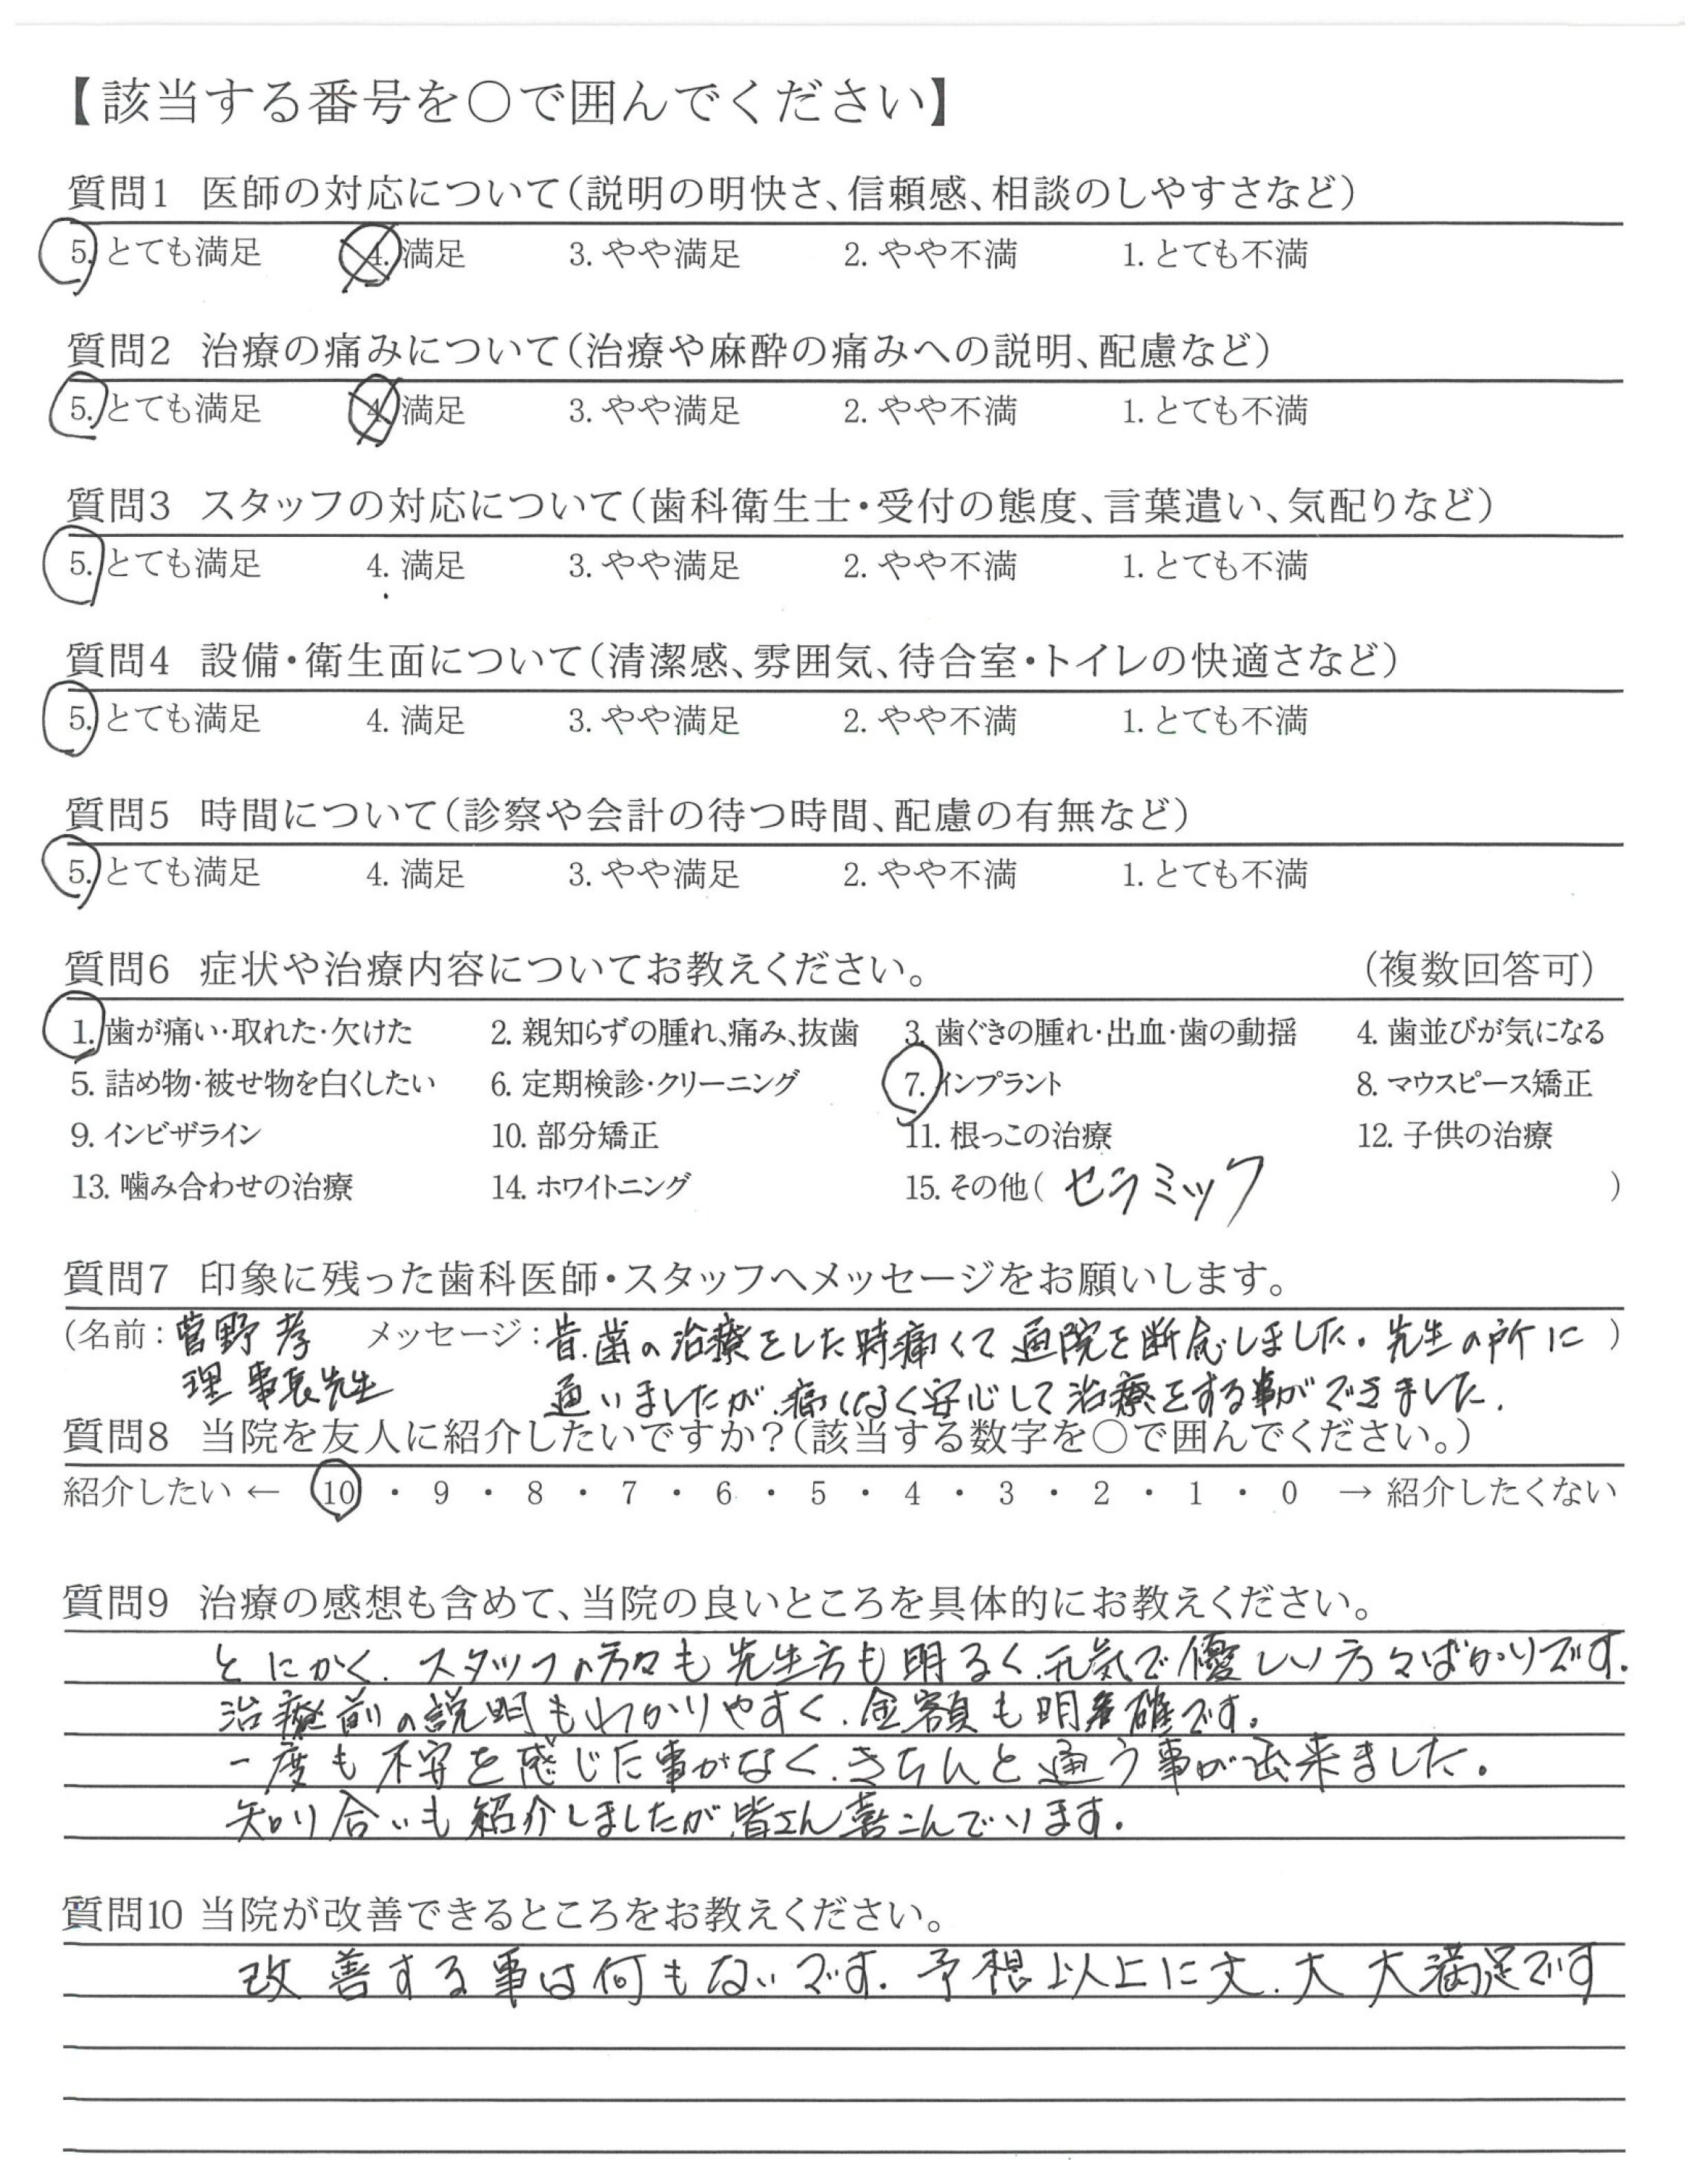 【該当する番号を○で囲んでください】
質問1 医師の対応について（説明の明快さ、信頼感、相談のしやすさなど）
5. とても満足 4. 満足 3. やや満足 2. やや不満 1. とても不満
質問2 治療の痛みについて（治療や麻酔の痛みへの説明、配慮など）
5. とても満足 4. 満足 3. やや満足 2. やや不満 1. とても不満
質問3 スタッフの対応について（歯科衛生士・受付の態度、言葉遣い、気配りなど）
5. とても満足 4. 満足 3. やや満足 2. やや不満 1. とても不満
質問4 設備・衛生面について（清潔感、雰囲気、待合室・トイレの快適さなど）
5. とても満足 4. 満足 3. やや満足 2. やや不満 1. とても不満
質問5 時間について（診察や会計の待つ時間、配慮の有無など）
5. とても満足 4. 満足 3. やや満足 2. やや不満 1. とても不満
質問6 症状や治療内容についてお教えください。 （複数回答可）
1. 歯が痛い・取れた・欠けた 2. 親知らずの腫れ、痛み、抜歯 3. 歯ぐきの腫れ・出血・歯の動揺 4. 歯並びが気になる
5. 詰め物・被せ物を白くしたい 6. 定期検診・クリーニング 7. インプラント 8. マウスピース矯正
9. インビザライン 10. 部分矯正 11. 根っこの治療 12. 子供の治療
13. 噛み合わせの治療 14. ホワイトニング 15. その他（ セラミック ）
質問7 印象に残った歯科医師・スタッフへメッセージをお願いします。
（名前：菅野 孝 メッセージ：昔、歯の治療をした時痛くて通院を断念しました。先生の所に ）
理事長先生 通いましたが、痛くなく安心して治療をする事ができました。
質問8 当院を友人に紹介したいですか？（該当する数字を○で囲んでください。）
紹介したい ← 10 ・ 9 ・ 8 ・ 7 ・ 6 ・ 5 ・ 4 ・ 3 ・ 2 ・ 1 ・ 0 → 紹介したくない
質問9 治療の感想も含めて、当院の良いところを具体的にお教えください。
とにかく、スタッフの方々も先生方も明るく、元気で優しい方々ばかりです。
治療前の説明もわかりやすく、金額も明確です。
一度も不安を感じた事がなく、きちんと通う事が出来ました。
知り合いも紹介しましたが、皆さん喜こんでいます。
質問10 当院が改善できるところをお教えください。
改善する事は何もないです。予想以上に大、大大満足です